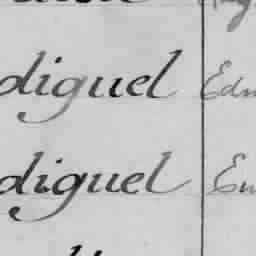 diguel Edm
diguel Em